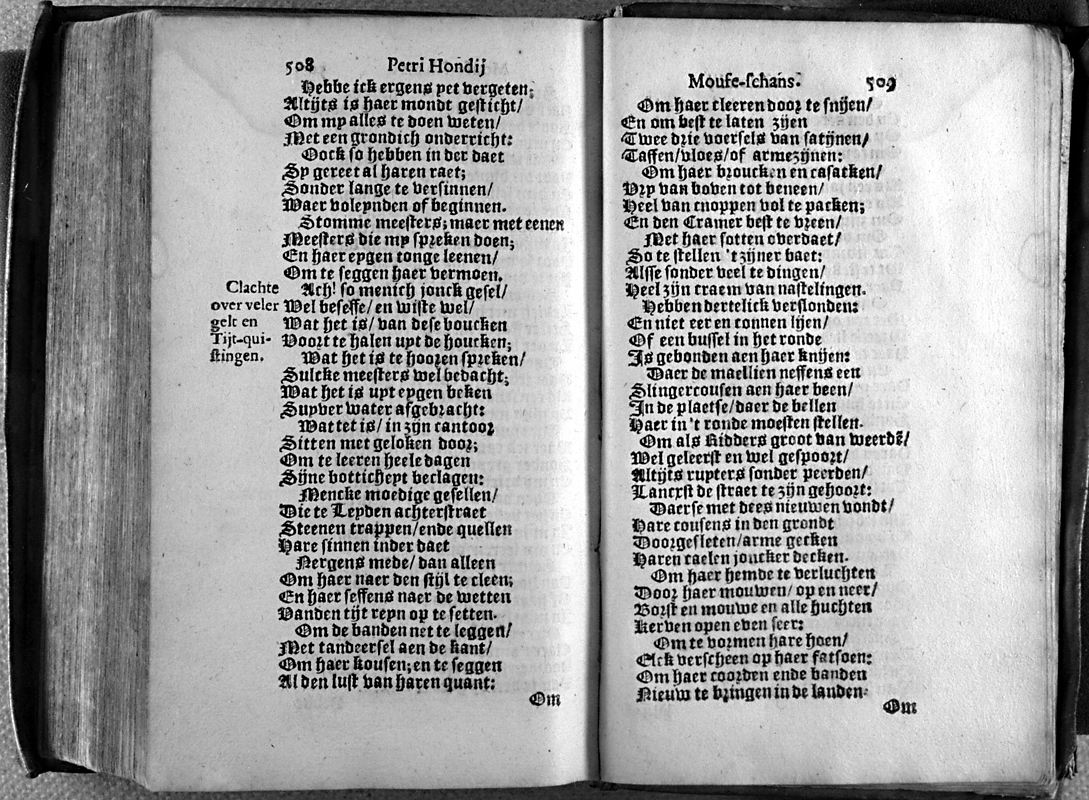 508 Petri Hondij
Hebbe ick ergens yet vergeten;
Altijts is haer mondt gesticht/
Om my alles te doen weten/
Met een grondich onderricht:
Oock so hebben in der daet
Sy gereet al haren raet;
Sonder lange te versinnen/
Waer voleynden of beginnen.
Stomme meesters; maer met eenen
Meesters die my spreken doen;
En haer eygen tonge leenen/
Om te seggen haer vermoen.
Clachte over veler gelt en Tijt-qui-stingen.
Ach! so menich jonck gesel/
Wel beseffe/ en wiste wel/
Wat het is/ van dese boucken
Voort te halen uyt de houcken;
Wat het is te hooren spreken/
Sulcke meesters wel bedacht;
Wat het is uyt eygen beken
Suyver water afgebracht:
Wat tet is/ in zijn cantoor
Sitten met geloken door;
Om te leeren heele dagen
Sijne botticheyt beclagen:
Mencke moedige gesellen/
Die te Leyden achterstraet
Steenen trappen/ ende quellen
Hare sinnen inder daet
Nergens mede/ dan alleen
Om haer naer den stijl te cleen;
En haer seffens naer de wetten
Vanden tijt reyn op te setten.
Om de banden net te leggen/
Met tandeersel aen de kant/
Om haer kousen; en te seggen
Al den lust van haren quant:
Om
Mouse-schans. 509
Om haer cleeren door te snijen/
En om best te laten zijen
Twee drie voersels van satijnen/
Taffen/vloes/of armezijnen:
Om haer broucken en casatken/
Vry van boven tot beneen/
Heel van cnoppen vol te packen;
En den Cramer best te vreen/
Met haer sotten overdaet/
So te stellen 't zijner baet:
Alsse sonder veel te dingen/
Heel zijn craem van nastelingen.
Hebben dertelick verslonden:
En niet eer en connen lijen/
Of een bussel in het ronde
Is gebonden aen haer knijen:
Daer de maellien neffens een
Slingercousen aen haer been/
In de plaetse/daer de bellen
Haer in 't ronde moesten stellen.
Om als Ridders groot van weerdẽ/
Wel geleerst en wel gespoort/
Altijts ruyters sonder peerden/
Lancxst de straet te zijn gehoort:
Daerse met dees nieuwen vondt/
Hare cousens in den grondt
Doorgesleten/arme gecken
Haren caelen joncker decken.
Om haer hemde te verluchten
Door haer mouwen/ op en neer/
Borst en mouwe en alle huchten
Kerven open even seer:
Om te vormen hare hoen/
Elck verscheen op haer fatsoen:
Om haer coorden ende banden
Nieuw te bringen in de landen:
Om